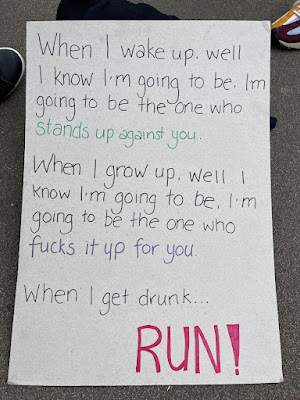 When I wake up, well
I know I'm going to be, Im
going to be the one who
stands up against you.
When I grow up, well I
know I'm going to be, I'm
going to be the one who
fucks it up for you.
When I get drunk...
RUN!